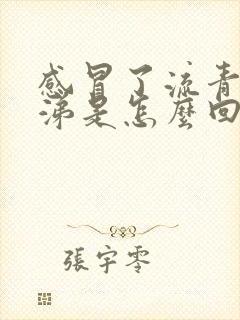 感冒了流青
涕是怎麼回
張宇零